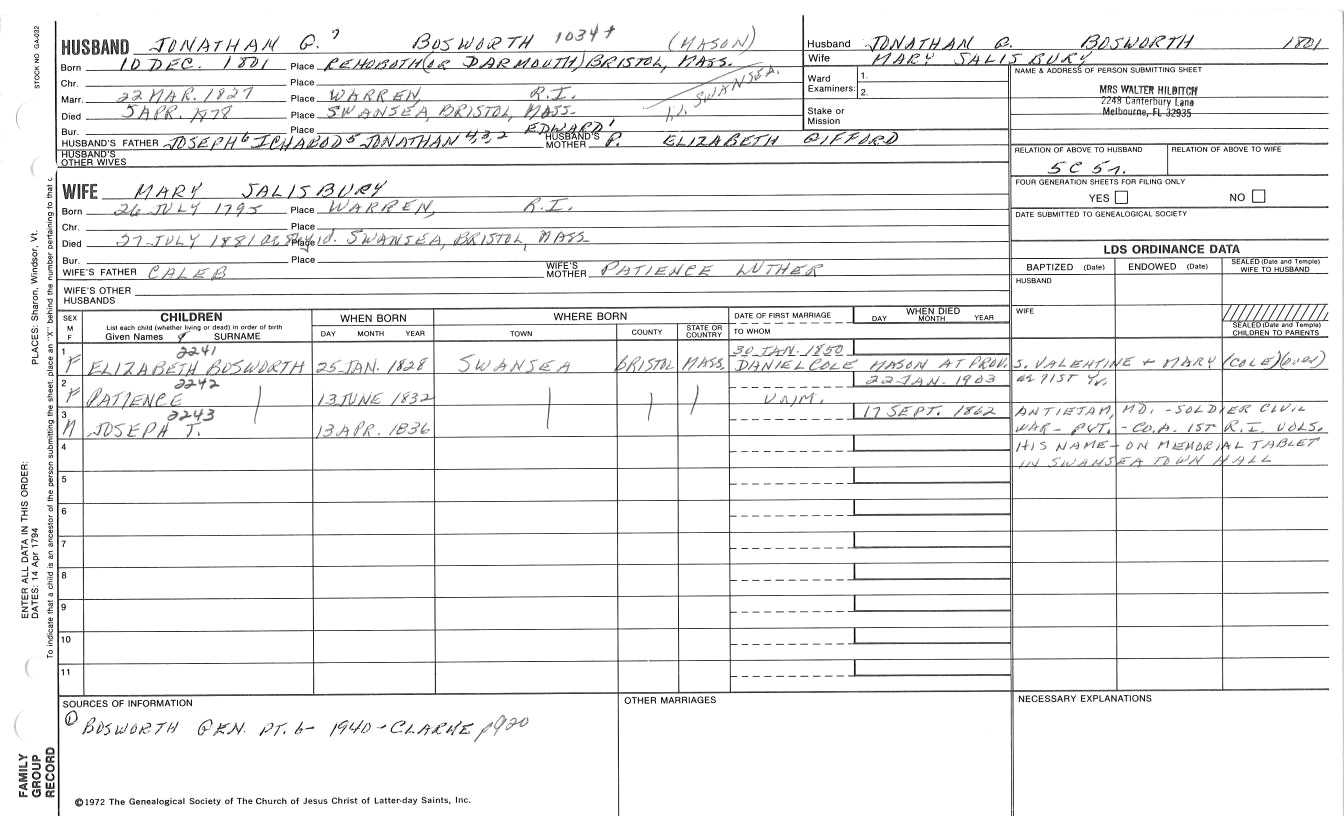 STOCK NO. GA-032
HUSBAND JONATHAN G.7 BOSWORTH 1034+ (MASON)
Born 10 DEC. 1801 Place REHOBOTH (OR DARMOUTH) BRISTOL, MASS.
Chr. Place
Marr. 22 MAR. 1827 Place WARREN R.I.
Died 5 APR. 1878 Place SWANSEA, BRISTOL, MASS. SWANSEA.
Bur. Place
HUSBAND'S FATHER JOSEPH6 ICHABOD5 JONATHAN4,3,2 EDWARD1 HUSBAND'S MOTHER P. ELIZABETH GIFFORD
HUSBAND'S OTHER WIVES
WIFE MARY SALISBURY
Born 26 JULY 1795 Place WARREN, R.I.
Chr. Place
Died 27 JULY 1881 Place SWANSEA, BRISTOL, MASS
Bur. Place
WIFE'S FATHER CALEB WIFE'S MOTHER PATIENCE LUTHER
WIFE'S OTHER HUSBANDS
Husband JONATHAN G. BOSWORTH 1801
Wife MARY SALISBURY
Ward Examiners: 1.
2.
Stake or Mission
NAME & ADDRESS OF PERSON SUBMITTING SHEET
MRS WALTER HILDITCH
2248 Canterbury Lane
Melbourne, FL 32935
RELATION OF ABOVE TO HUSBAND RELATION OF ABOVE TO WIFE
5C 5r.
FOUR GENERATION SHEETS FOR FILING ONLY
YES NO
DATE SUBMITTED TO GENEALOGICAL SOCIETY
LDS ORDINANCE DATA
BAPTIZED (Date) ENDOWED (Date) SEALED (Date and Temple) WIFE TO HUSBAND
HUSBAND
WIFE
SEALED (Date and Temple) CHILDREN TO PARENTS
SEX M F CHILDREN WHEN BORN WHERE BORN DATE OF FIRST MARRIAGE WHEN DIED
List each child (whether living or dead) in order of birth
Given Names SURNAME DAY MONTH YEAR TOWN COUNTY STATE OR COUNTRY TO WHOM DAY MONTH YEAR
2241 30 JAN. 1850
1 F ELIZABETH BOSWORTH 25 JAN. 1828 SWANSEA BRISTOL MASS. DANIEL COLE MASON AT PROV. S. VALENTINE + MARY (COLE)
2242 22 JAN. 1903 71ST Yr.
2 F PATIENCE 13 JUNE 1832 UNM.
2243 17 SEPT. 1862 ANTIETAM, MD. - SOLDIER CIVIL
3 M JOSEPH T. 13 APR. 1836 WAR - PVT. - CO. A. 1ST R.I. VOLS.
4 HIS NAME - ON MEMORIAL TABLET
IN SWANSEA TOWN HALL
5
6
7
8
9
10
11
SOURCES OF INFORMATION OTHER MARRIAGES NECESSARY EXPLANATIONS
① BOSWORTH GEN. PT. 6 - 1940 - CLARKE p920
©1972 The Genealogical Society of The Church of Jesus Christ of Latter-day Saints, Inc.
PLACES: Sharon, Windsor, Vt.
ENTER ALL DATA IN THIS ORDER:
DATES: 14 Apr 1794
To indicate that a child is an ancestor of the person submitting the sheet, place an "X" behind the number pertaining to that c
FAMILY GROUP RECORD